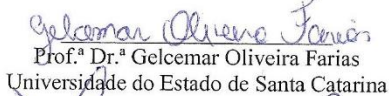 Gelcemar Oliveira Farias
Prof.ª Dr.ª Gelcemar Oliveira Farias
Universidade do Estado de Santa Catarina